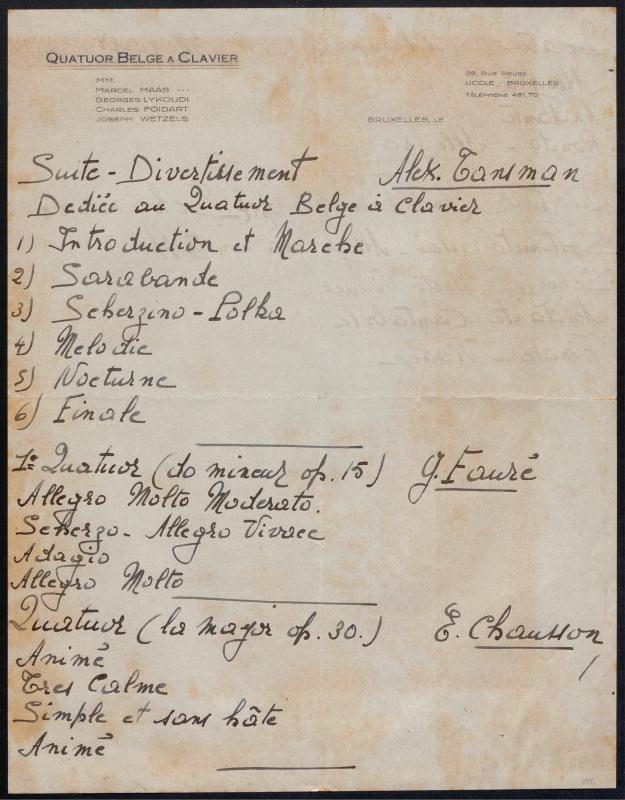 QUATUOR BELGE A CLAVIER
MM.
MARCEL MAAS ...
GEORGES LYKOUDI
CHARLES FOIDART
JOSEPH WETZELS
39, RUE ROUGE
UCCLE - BRUXELLES
TÉLÉPHONE 481,70
BRUXELLES, LE
Suite - Divertissement Alex. Tansman
Dediée au Quatuor Belge à Clavier
1) Introduction et Marche
2) Sarabande
3) Scherzino - Polka
4) Melodie
5) Nocturne
6) Finale
1e Quatuor (do mineur op. 15) G. Fauré
Allegro Molto Moderato.
Scherzo - Allegro Vivace
Adagio
Allegro Molto
Quatuor (la major op. 30.) E. Chausson
Animé
Tres Calme
Simple et sans hâte
Animé